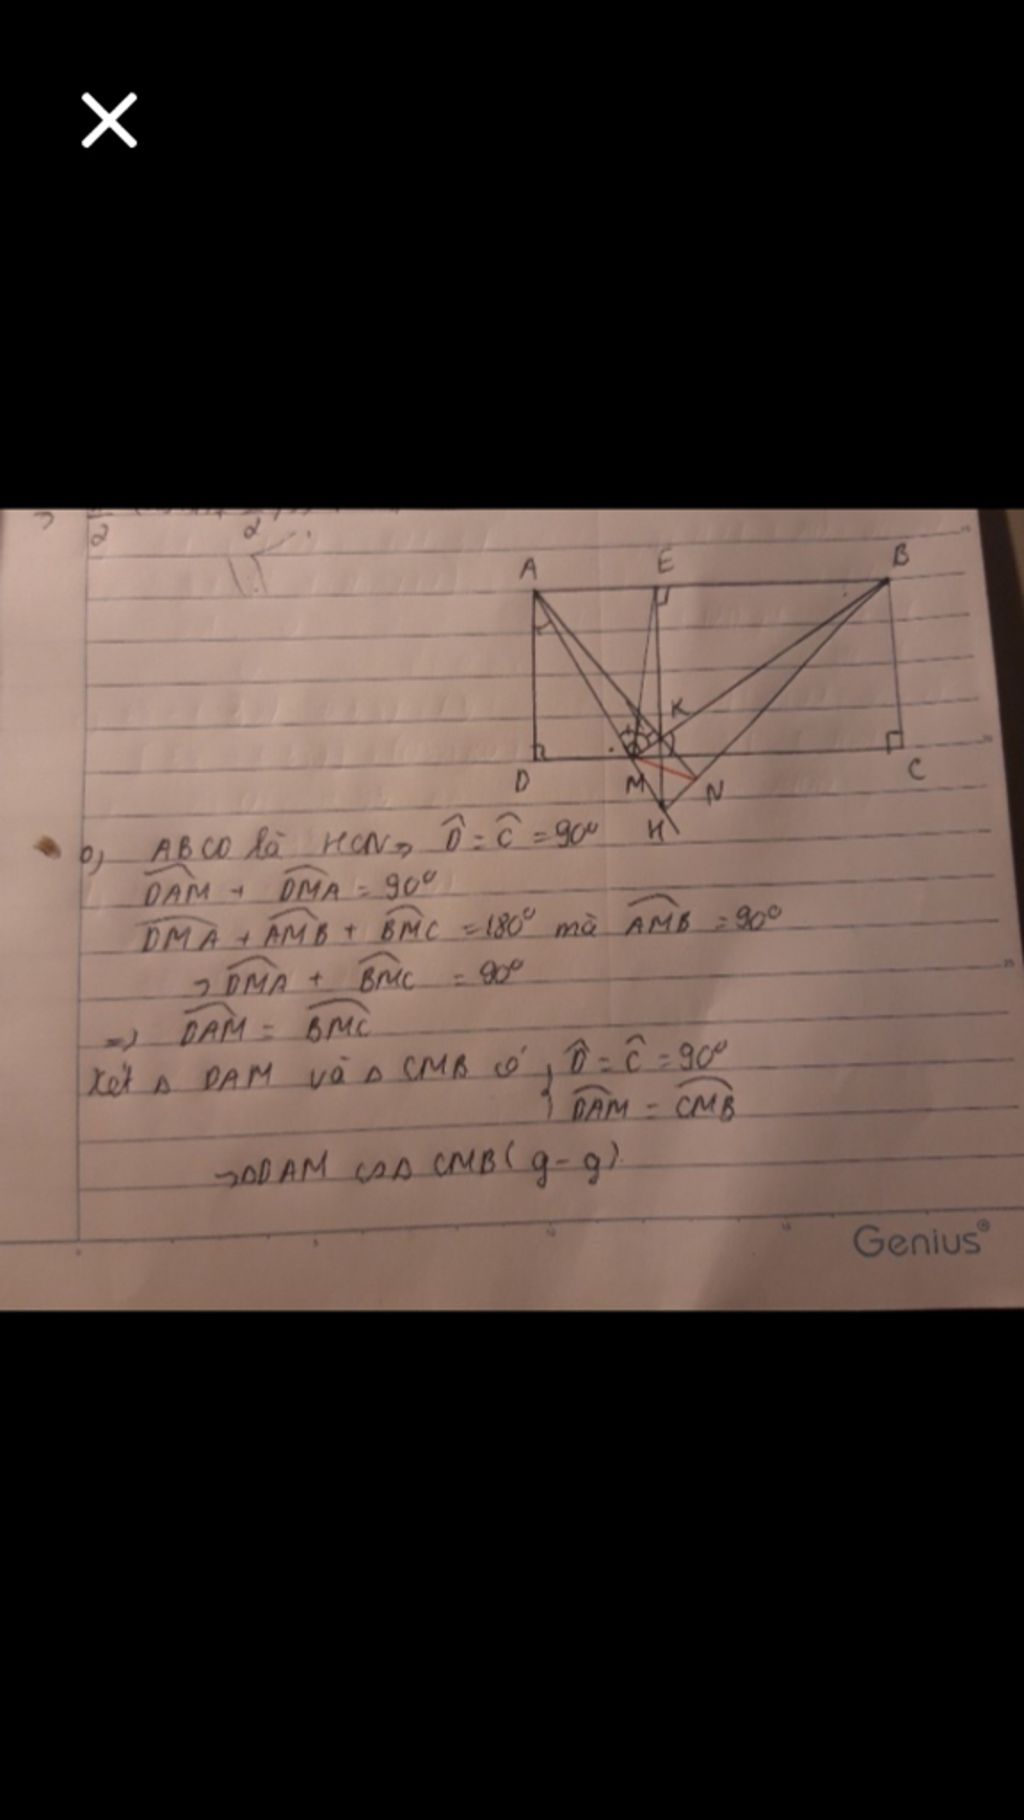 2 2
A E B
K
D M N C
H
b, ABCD là HCN => D̂ = Ĉ = 90°
DAM + DMA = 90°
DMA + AMB + BMC = 180° mà AMB = 90°
=> DMA + BMC = 90°
=> DAM = BMC
Xét Δ DAM và Δ CMB có { D̂ = Ĉ = 90°
DAM = CMB
=> ΔDAM ∽ Δ CMB ( g - g ).
Genius®